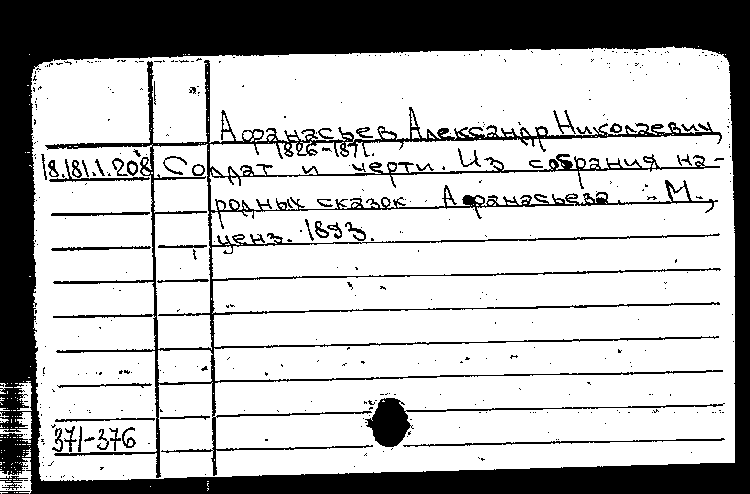 Афанасьев, Александр Николаевич,
1826-1871.
18.181.1.208. Солдат и черти. Из собрания на-
родных сказок Афанасьева. - М.,
ценз. 1893.
371-376